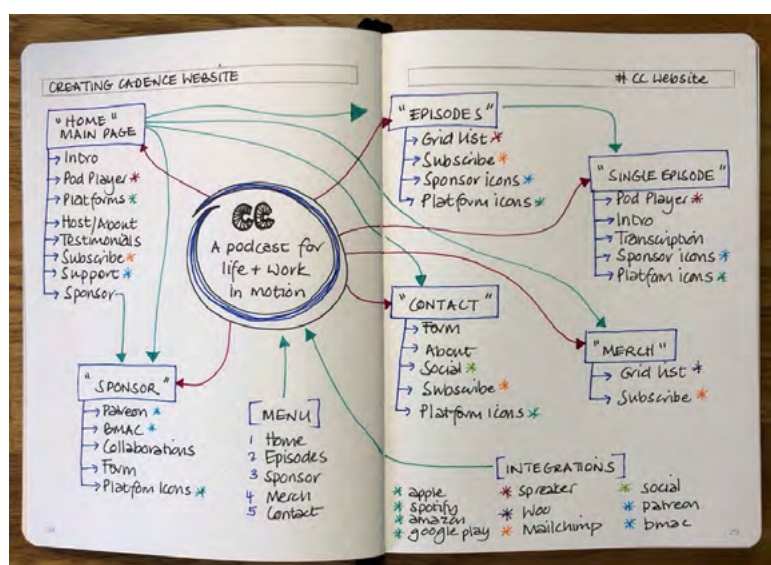 CREATING CADENCE WEBSITE
# CC Website
"HOME"
MAIN PAGE
Intro
Pod Player *
Platforms *
Host/About
Testimonials
Subscribe *
Support *
Sponsor
CC
A podcast for
life + work
in motion
"SPONSOR"
Patreon *
BMAC *
Collaborations
Form
Platform Icons *
[MENU]
1 Home
2 Episodes
3 Sponsor
4 Merch
5 Contact
"EPISODES"
Grid list *
Subscribe *
Sponsor icons *
Platform icons *
"SINGLE EPISODE"
Pod Player *
Intro
Transcription
Sponsor icons *
Platform icons *
"CONTACT"
Form
About
Social *
Subscribe *
Platform icons *
"MERCH"
Grid list *
Subscribe *
[INTEGRATIONS]
* apple
* spotify
* amazon
* google play
* spreaker
* Woo
* Mailchimp
* social
* patreon
* bmac